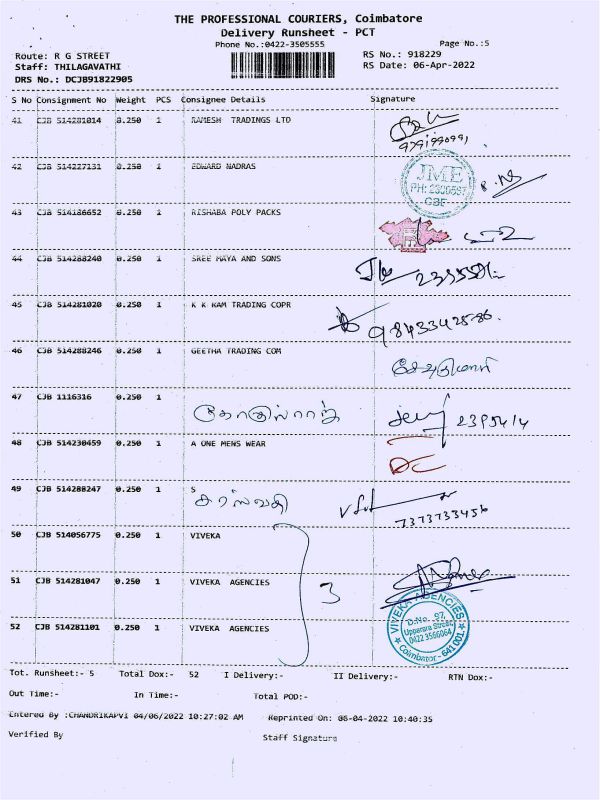 THE PROFESSIONAL COURIERS, Coimbatore
Delivery Runsheet - PCT
Phone No.:0422-3505555
Page No.:5
Route: R G STREET
RS No.: 918229
Staff: THILAGAVATHI
RS Date: 06-Apr-2022
DRS No.: DCJB91822905
S No Consignment No Weight PCS Consignee Details Signature
41 CJB 514281014 0.250 1 RAMESH TRADINGS LTD
9791990991
42 CJB 514227131 0.250 1 EDWARD NADRAS
JME
PH: 2300597
CBE
43 CJB 514186652 0.250 1 RISHABA POLY PACKS
44 CJB 514288240 0.250 1 SREE MAYA AND SONS
45 CJB 514281020 0.250 1 K K RAM TRADING COPR
9843342586
46 CJB 514288246 0.250 1 GEETHA TRADING COM
47 CJB 1116316 0.250 1
2395414
48 CJB 514230459 0.250 1 A ONE MENS WEAR
DC
49 CJB 514288247 0.250 1 S
சரஸ்வதி
7373733456
50 CJB 514056775 0.250 1 VIVEKA
51 CJB 514281047 0.250 1 VIVEKA AGENCIES
3
52 CJB 514281101 0.250 1 VIVEKA AGENCIES
VIVEKA AGENCIES
D.No. 97,
Upparara Street,
0422 3566064
Coimbator - 641 001.
Tot. Runsheet:- 5 Total Dox:- 52 I Delivery:- II Delivery:- RTN Dox:-
Out Time:- In Time:- Total POD:-
Entered By :CHANDRIKAPVI 04/06/2022 10:27:02 AM Reprinted On: 06-04-2022 10:40:35
Verified By Staff Signature